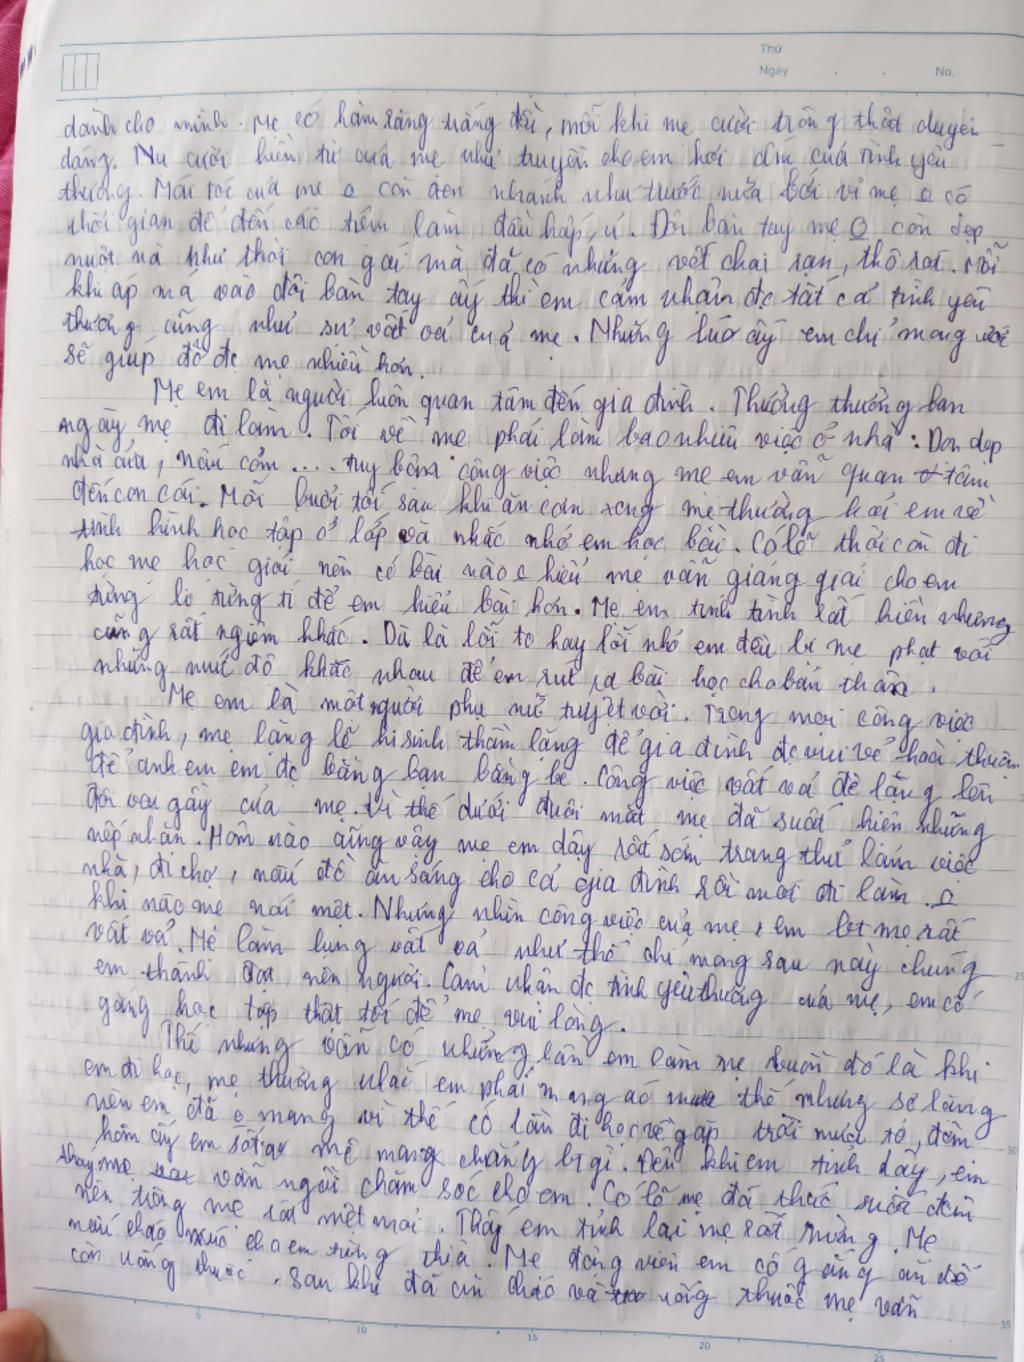 Thứ
Ngày . . No.
dành cho mình. Mẹ có hàm răng trắng đều, mỗi khi mẹ cười trông thật duyên
dáng. Nụ cười hiền từ của mẹ như truyền cho em hơi ấm của tình yêu
thương. Mái tóc của mẹ o còn đen nhánh như trước nữa bởi vì mẹ o có
thời gian để đến các tiệm làm đầu hấp, ủ. Đôi bàn tay mẹ o còn đẹp
nuột nà như thời con gái mà đã có những vết chai sạn, thô ráp. Mỗi
khi áp má vào đôi bàn tay ấy thì em cảm nhận đc tất cả tình yêu
thương cũng như sự vất vả của mẹ. Những lúc ấy em chỉ mong ước
sẽ giúp đỡ đc mẹ nhiều hơn.
Mẹ em là người luôn quan tâm đến gia đình. Thường thường ban
ngày mẹ đi làm. Tối về mẹ phải làm bao nhiêu việc ở nhà: Dọn dẹp
nhà cửa, nấu cơm .... tuy bận công việc nhưng mẹ em vẫn quan tâm
đến con cái. Mỗi buổi tối sau khi ăn cơm xong mẹ thường hỏi em về
tình hình học tập ở lớp và nhắc nhở em học bài. Có lẽ thời còn đi
học mẹ học giỏi nên có bài nào o hiểu mẹ vẫn giảng giải cho em
từng li từng tí để em hiểu bài hơn. Mẹ em tính tình rất hiền nhưng
cũng rất nghiêm khắc. Dù là lỗi to hay lỗi nhỏ em đều bị mẹ phạt với
những mức độ khác nhau để em rút ra bài học cho bản thân.
Mẹ em là một người phụ nữ tuyệt vời. Trong mọi công việc
gia đình, mẹ lặng lẽ hi sinh thầm lặng để gia đình đc vui vẻ hoà thuận
để anh em em đc bằng bạn bằng bè. Công việc vất vả đè lặng lên
đôi vai gầy của mẹ. Vì thế dưới đuôi mắt mẹ đã suất hiện những
nếp nhăn. Hôm nào cũng vậy mẹ em dậy rất sớm trang thủ làm việc
nhà, đi chợ, nấu đồ ăn sáng cho cả gia đình rồi mới đi làm. o
khi nào mẹ nói mệt. Nhưng nhìn công việc của mẹ, em bt mẹ rất
vất vả. Mẹ làm lụng vất vả như thế chỉ mong sau này chúng
em thành đạt nên người. Cảm nhận đc tình yêu thương của mẹ, em cố
gắng học tập thật tốt để mẹ vui lòng.
Thế nhưng vẫn có những lần em làm mẹ buồn đó là khi
em đi học, mẹ thường nhắc em phải mang áo mưa thế nhưng sơ làng
nên em đã o mang vì thế có lần đi học về gặp trời mưa to, đêm
hôm ấy em sốt cao mê mang chẳng bt gì. Đến khi em tỉnh dậy, em
thấy mẹ vẫn ngồi chăm sóc cho em. Có lẽ mẹ đã thức suốt đêm
nên trông mẹ rất mệt mỏi. Thấy em tỉnh lại mẹ rất mừng. Mẹ
nấu cháo múc cho em từng thìa. Mẹ động viên em cố gắng ăn để
còn uống thuốc. Sau khi đã ăn cháo và uống thuốc mẹ vẫn
5 10 15 20 25
25
30
35